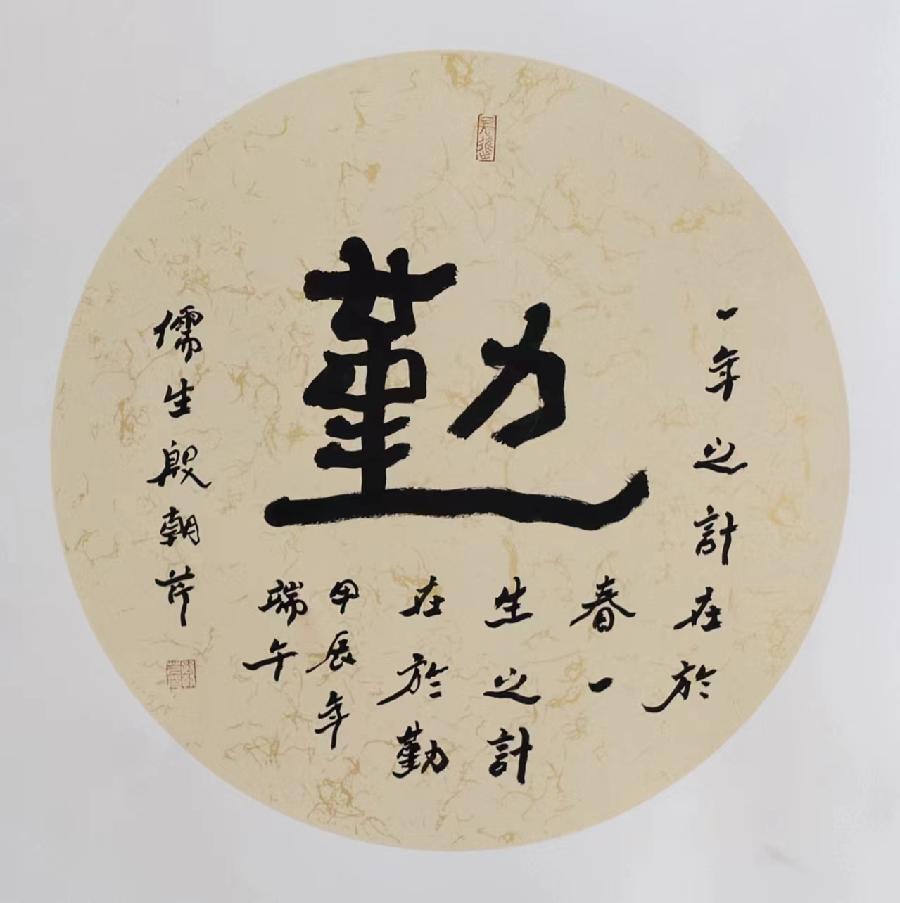 勤
一年之計在於
春一
生之計
在於勤
甲辰年
端午
儒生殷朝芹